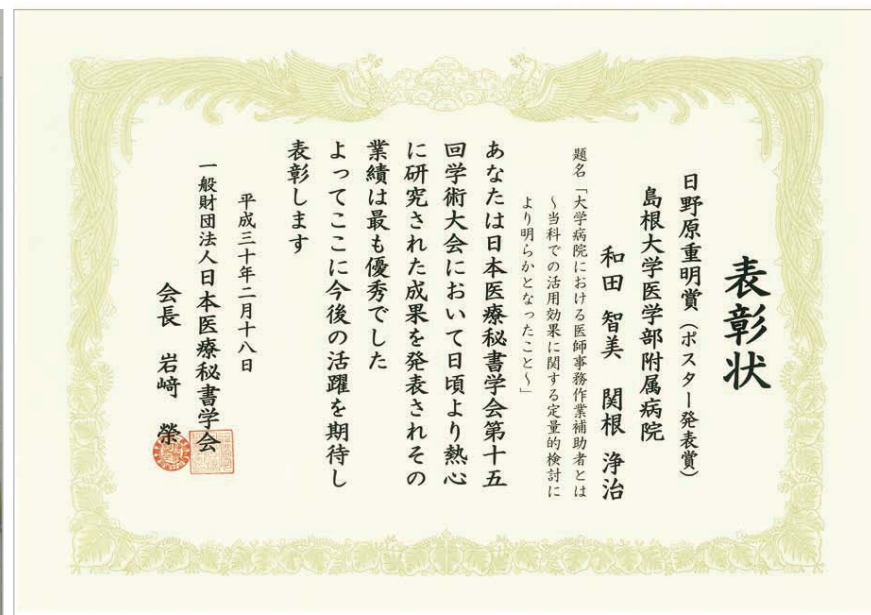 表彰状
日野原重明賞(ポスター発表賞)
島根大学医学部附属病院
和田 智美 関根 浄治
題名「大学病院における医師事務作業補助者とは
~当科での活用効果に関する定量的検討に
より明らかとなったこと~」
あなたは日本医療秘書学会第十五
回学術大会において日頃より熱心
に研究された成果を発表されその
業績は最も優秀でした
よってここに今後の活躍を期待し
表彰します
平成三十年二月十八日
一般財団法人日本医療秘書学会
会長 岩﨑 榮